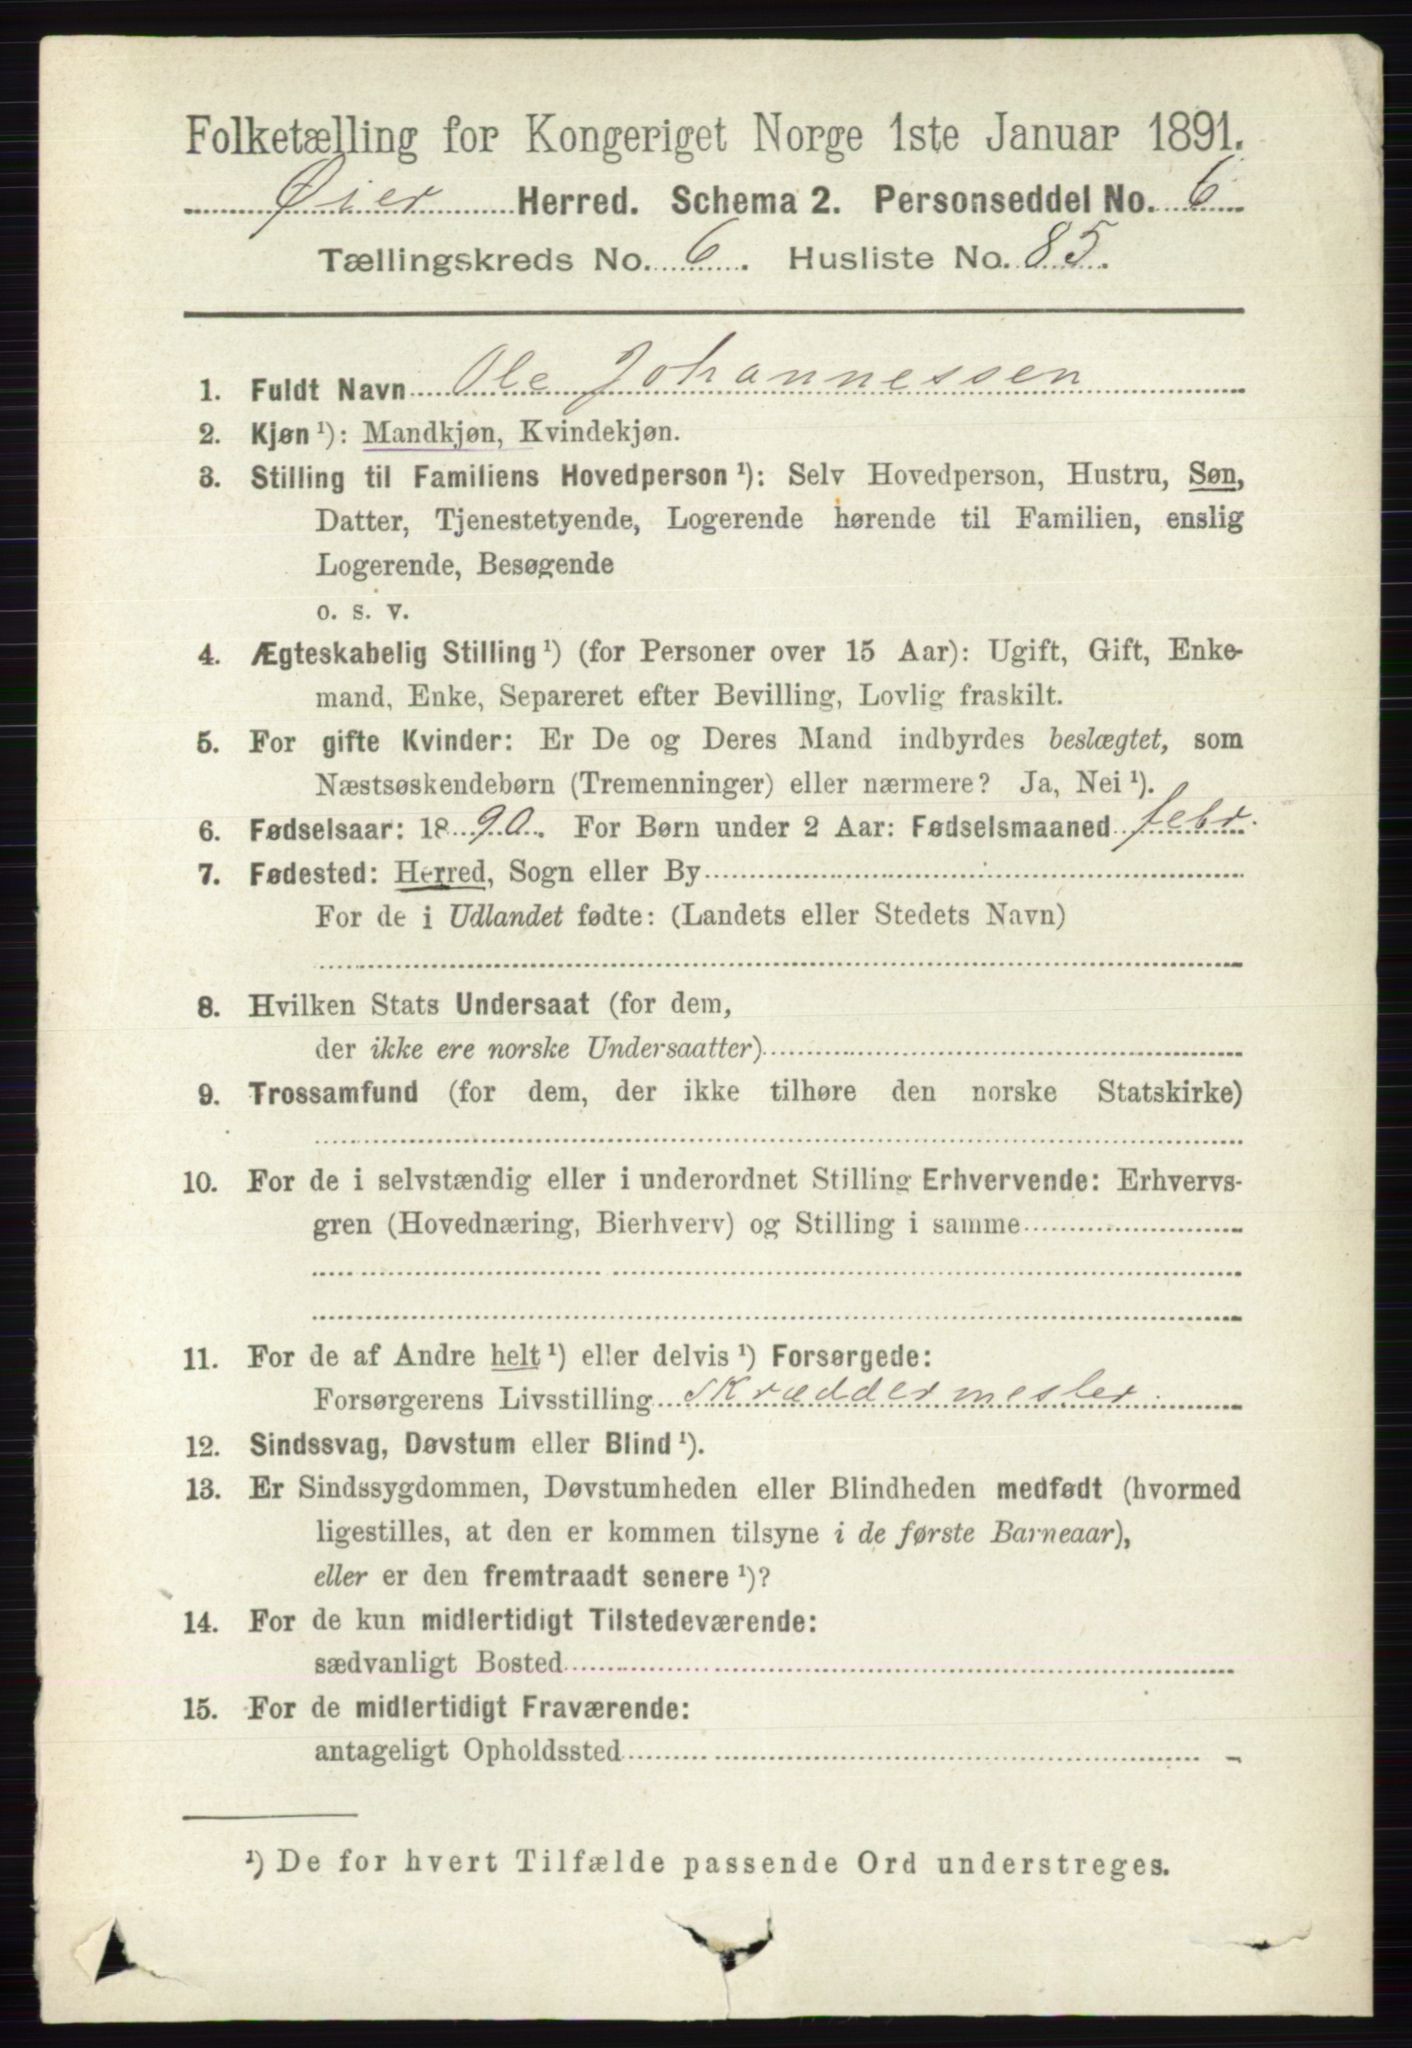 Folketælling for Kongeriget Norge 1ste Januar 1891.
Øier Herred. Schema 2. Personseddel No. 6
Tællingskreds No. 6. Husliste No. 85.
1. Fuldt Navn Ole Johannessen
2. Kjøn¹): Mandkjøn, Kvindekjøn.
3. Stilling til Familiens Hovedperson¹): Selv Hovedperson, Hustru, Søn,
Datter, Tjenestetyende, Logerende hørende til Familien, enslig
Logerende, Besøgende
o. s. v.
4. Ægteskabelig Stilling¹) (for Personer over 15 Aar): Ugift, Gift, Enke-
mand, Enke, Separeret efter Bevilling, Lovlig fraskilt.
5. For gifte Kvinder: Er De og Deres Mand indbyrdes beslægtet, som
Næstsøskendebørn (Tremenninger) eller nærmere? Ja, Nei¹).
6. Fødselsaar: 1890. For Børn under 2 Aar: Fødselsmaaned febr.
7. Fødested: Herred, Sogn eller By
For de i Udlandet fødte: (Landets eller Stedets Navn)
8. Hvilken Stats Undersaat (for dem,
der ikke ere norske Undersaatter)
9. Trossamfund (for dem, der ikke tilhøre den norske Statskirke)
10. For de i selvstændig eller i underordnet Stilling Erhvervende: Erhvervs-
gren (Hovednæring, Bierhverv) og Stilling i samme
11. For de af Andre helt¹) eller delvis¹) Forsørgede:
Forsørgerens Livsstilling Skræddermester.
12. Sindssvag, Døvstum eller Blind¹).
13. Er Sindssygdommen, Døvstumheden eller Blindheden medfødt (hvormed
ligestilles, at den er kommen tilsyne i de første Barneaar),
eller er den fremtraadt senere¹)?
14. For de kun midlertidigt Tilstedeværende:
sædvanligt Bosted
15. For de midlertidigt Fraværende:
antageligt Opholdssted
¹) De for hvert Tilfælde passende Ord understreges.